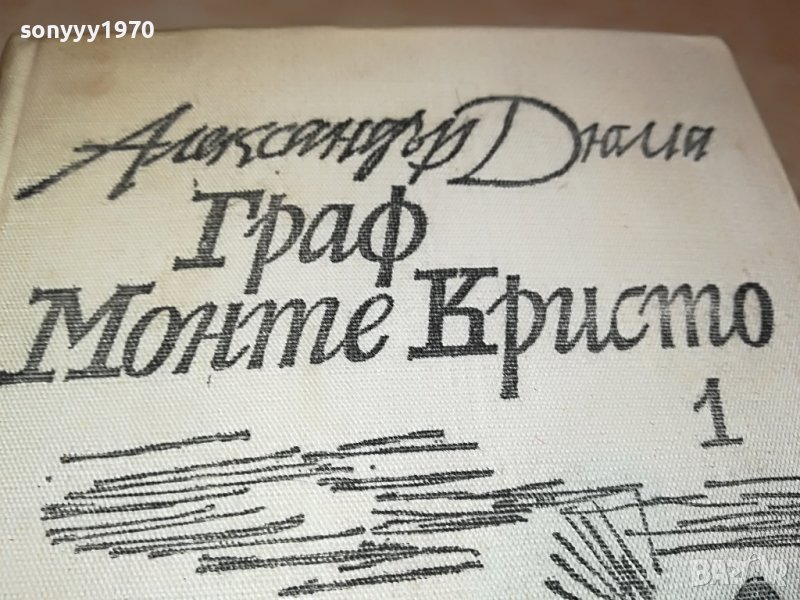 sonyyy1970
Александър Дюма
Граф
Монте Кристо
1
BAZAR